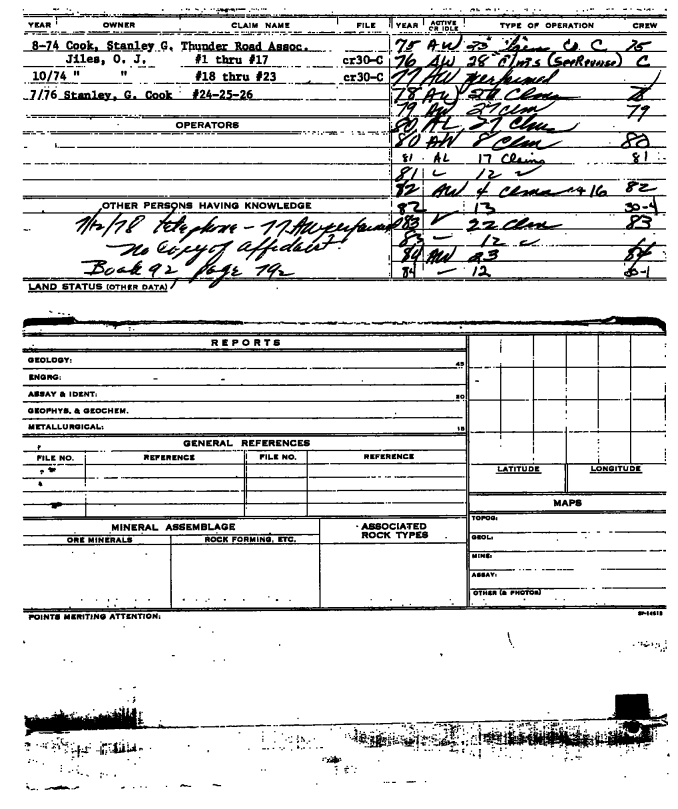 YEAR OWNER CLAIM NAME FILE YEAR ACTIVE OR IDLE TYPE OF OPERATION CREW
8-74 Cook, Stanley G. Thunder Road Assoc. 75 AW 23 C 75
Jiles, O. J. #1 thru #17 cr30-C 76 AW 28 (See Reverse) C
10/74 " " #18 thru #23 cr30-C 77 AW
7/76 Stanley, G. Cook #24-25-26 78 AW Clms
79 AW 27 clm 79
OPERATORS 80 AL 27 Clms
80 AW 8 Clm 80
81 AL 17 Claims 81
81 12
82 AW 4 Clms 16 82
OTHER PERSONS HAVING KNOWLEDGE 82 13
telephone - 77 AW performed 83 22 Clm 83
No Copy of affidavit 83 12
Book 92 page 792 84 AW 23 84
84 12
LAND STATUS (OTHER DATA)
REPORTS
GEOLOGY: 45
ENGRG:
ASSAY & IDENT: 20
GEOPHYS. & GEOCHEM.
METALLURGICAL: 15
GENERAL REFERENCES
FILE NO. REFERENCE FILE NO. REFERENCE
LATITUDE LONGITUDE
MAPS
MINERAL ASSEMBLAGE ASSOCIATED ROCK TYPES
ORE MINERALS ROCK FORMING, ETC.
TOPOG:
GEOL:
MINE:
ASSAY:
OTHER (& PHOTOS)
POINTS MERITING ATTENTION: